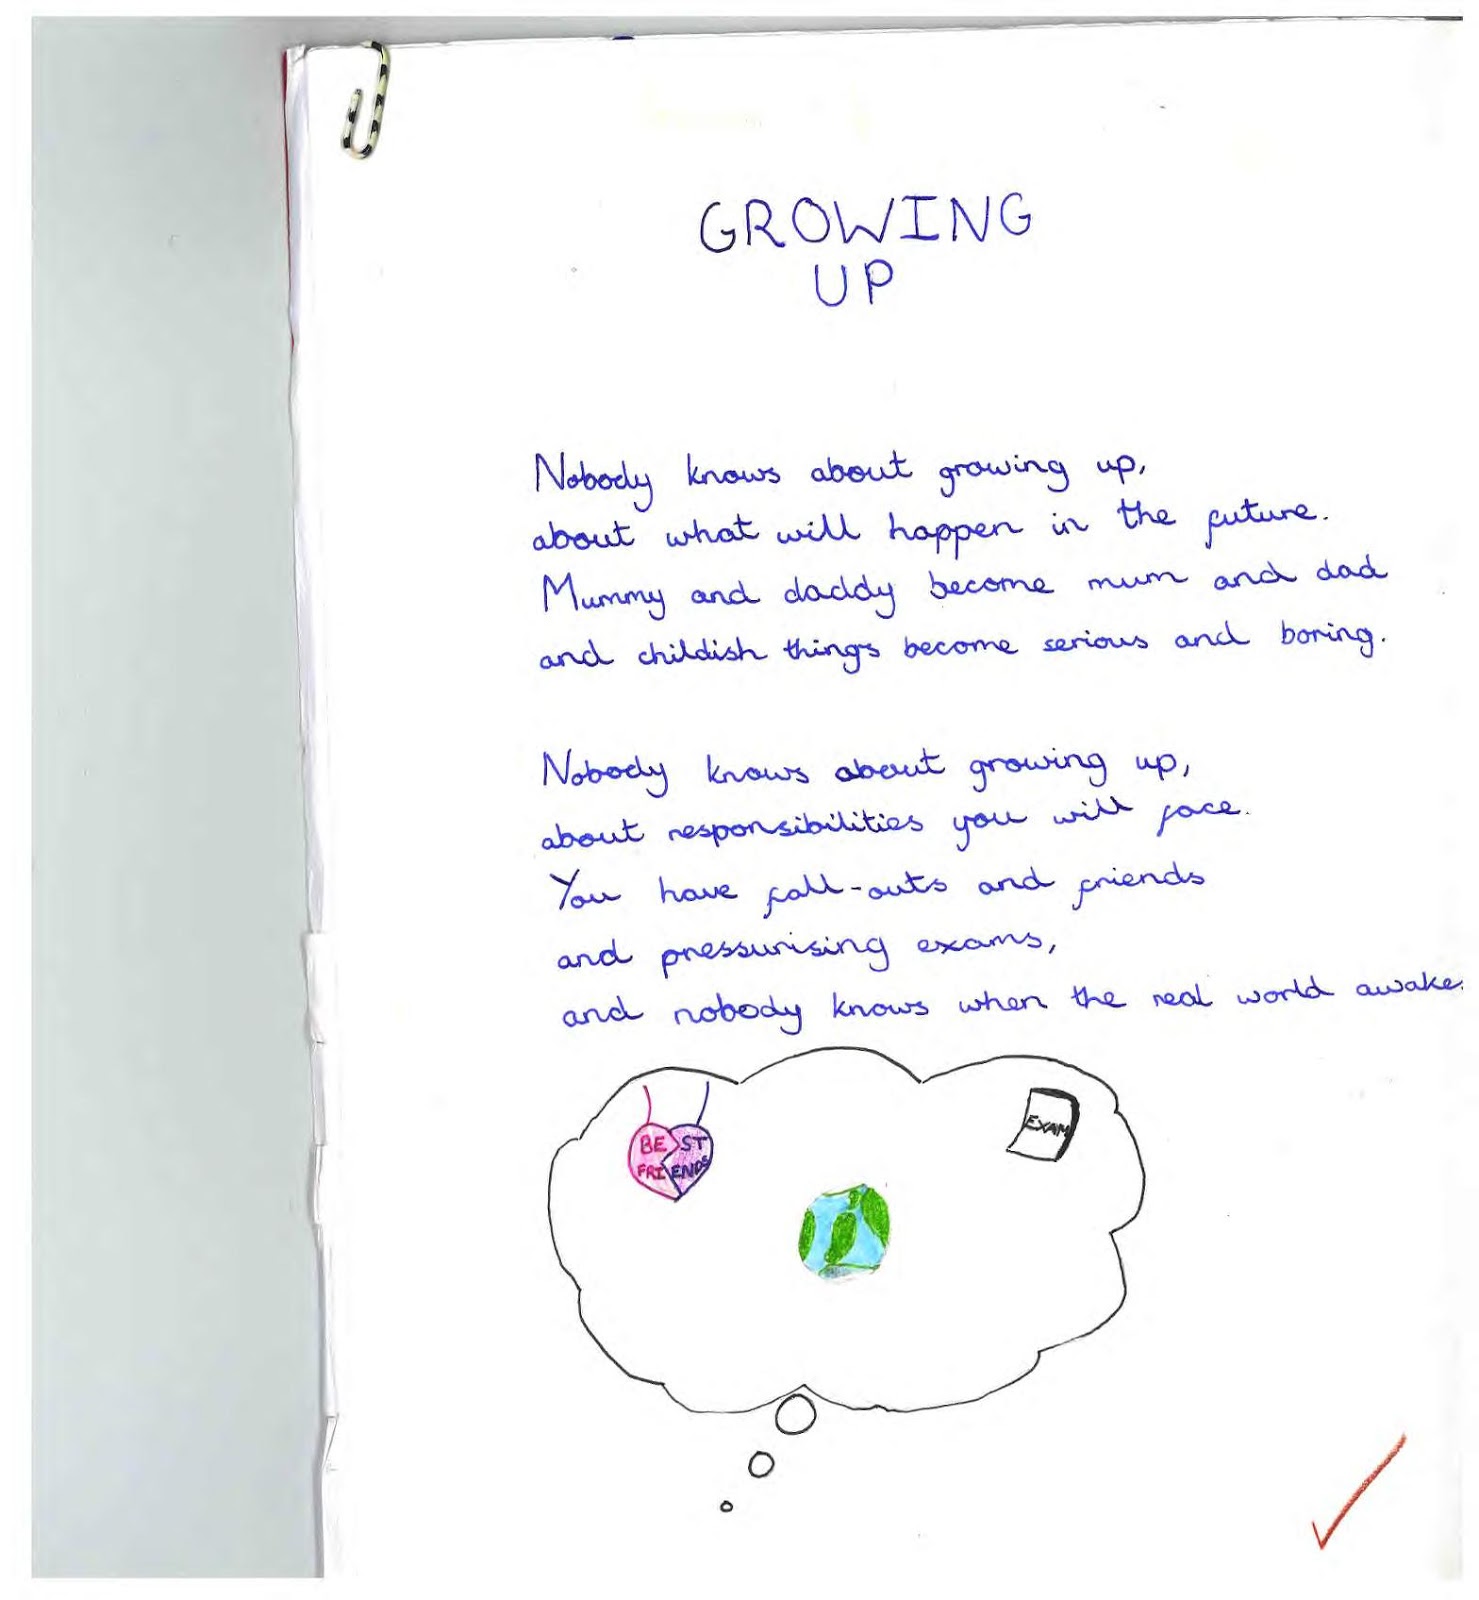 GROWING
UP
Nobody knows about growing up,
about what will happen in the future.
Mummy and daddy become mum and dad
and childish things become serious and boring.
Nobody knows about growing up,
about responsibilities you will face.
You have fall-outs and friends
and pressurising exams,
and nobody knows when the real world awake
BE ST
FRI ENDS
EXAM